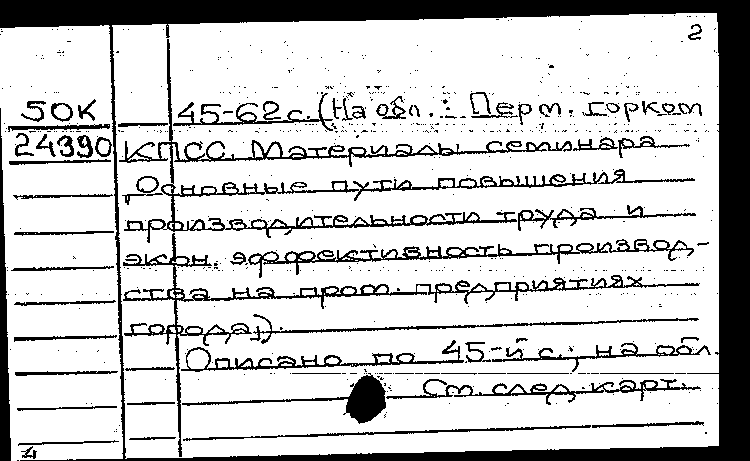 2
50К 45-62 с. (На обл.: Перм. горком
24390 КПСС. Материалы семинара
„Основные пути повышения
производительности труда и
экон. эффективность производ-
ства на пром. предприятиях
города„).
Описано по 45-й с.; на обл.
См. след. карт.
4